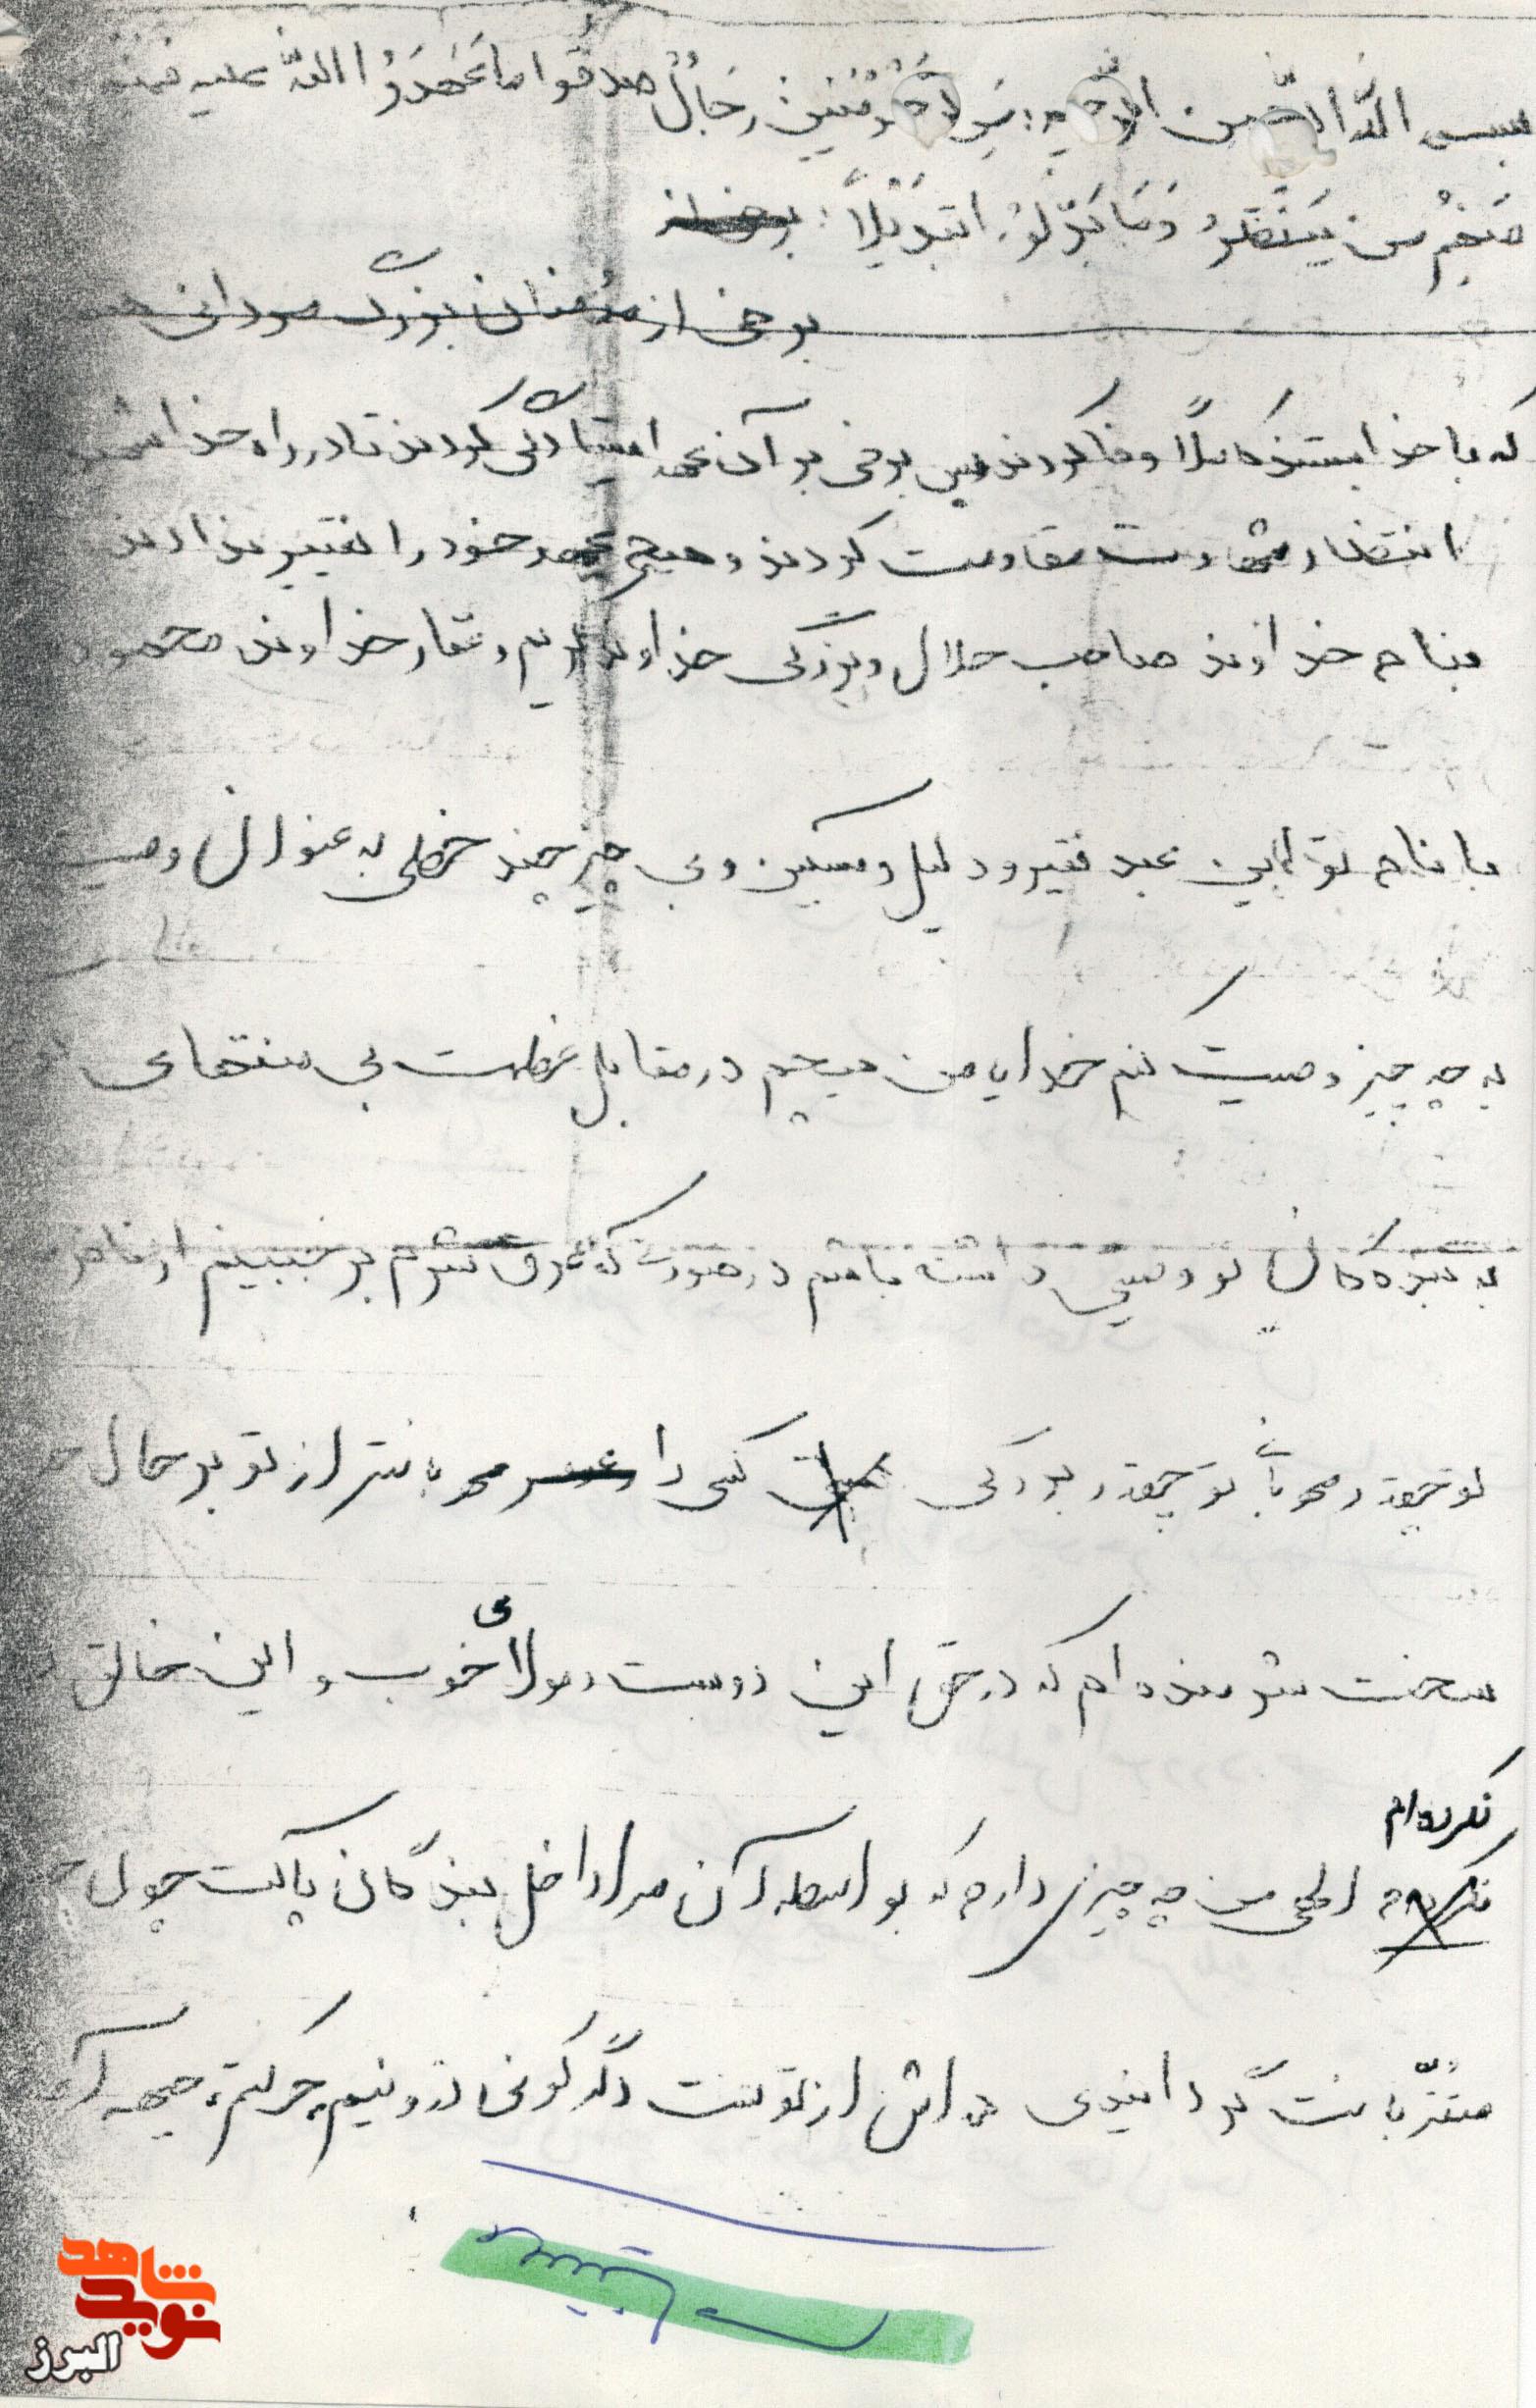 بسم اللّه الرّحمن الرّحیم: مِنَ المُؤمِنینَ رِجَالٌ صدقوا ما عَهَدَوُا اللّهَ علیه فمنهم
مَنهُمْ من یَنْتَظِرُ وَمَا بَدَّلوُا تبدیلاً: برخی از
برخی از مؤمنان بزرگ مردانی هستند
که با خدا بستند کاملاً وفا کردند پس برخی بر آن عهد ایستادگی کردند تا در راه خدا شهید
انتظار شهادت مقاومت کردند و هیچ عهد خود را تغییر ندادند
بنام خداوند صاحب جلال و بزرگی خداوند کریم و غفار خداوند محمود
با نام تو این عبد فقیر و ذلیل و مسکین و بی چیز چند خطی به عنوان وصیت
به چه چیز وصیت کنم خدایا من هیچم در مقابل عظمت بی منتهای
به بندگان تو وصیتی داشته باشم در صورتی که غرق شوم بر نبینم از ظاهر
تو چقدر مهربانی تو چقدر بزرگی کسی را مهربانتر از تو بر حال
سخت شرمنده ام که در حق این دوست و مولای خوب و این خالق
نکرده ام
الهی من چه چیز دارم که بواسطه آن مرا داخل بندگان پاکت چون
مقرّبانت گردانیدی خداش از توست دگرگونی درونیم، حرکتم،
شاهد
نوید
البرز